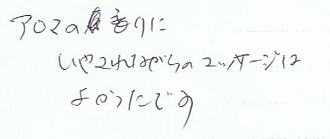 アロマの香りに
いやされながらのマッサージは
よかったです